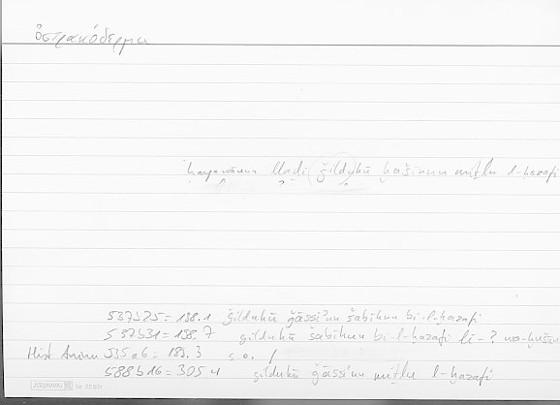 ὀστρακόδερμα
ḥayawānun lladī ǧilduhū ḫašinun miṯlu l-ḫazafi
537b25 = 138.1 ǧilduhū ǧāssiʾun šabīhun bi-l-ḫazafi
537b31 = 138.7 ǧilduhū šabīhun bi-l-ḫazafi li-?
Hist Anim 535a6 = s.o.
588b16 = 305 ǧilduhū ǧāssiʾun miṯlu l-ḫazafi